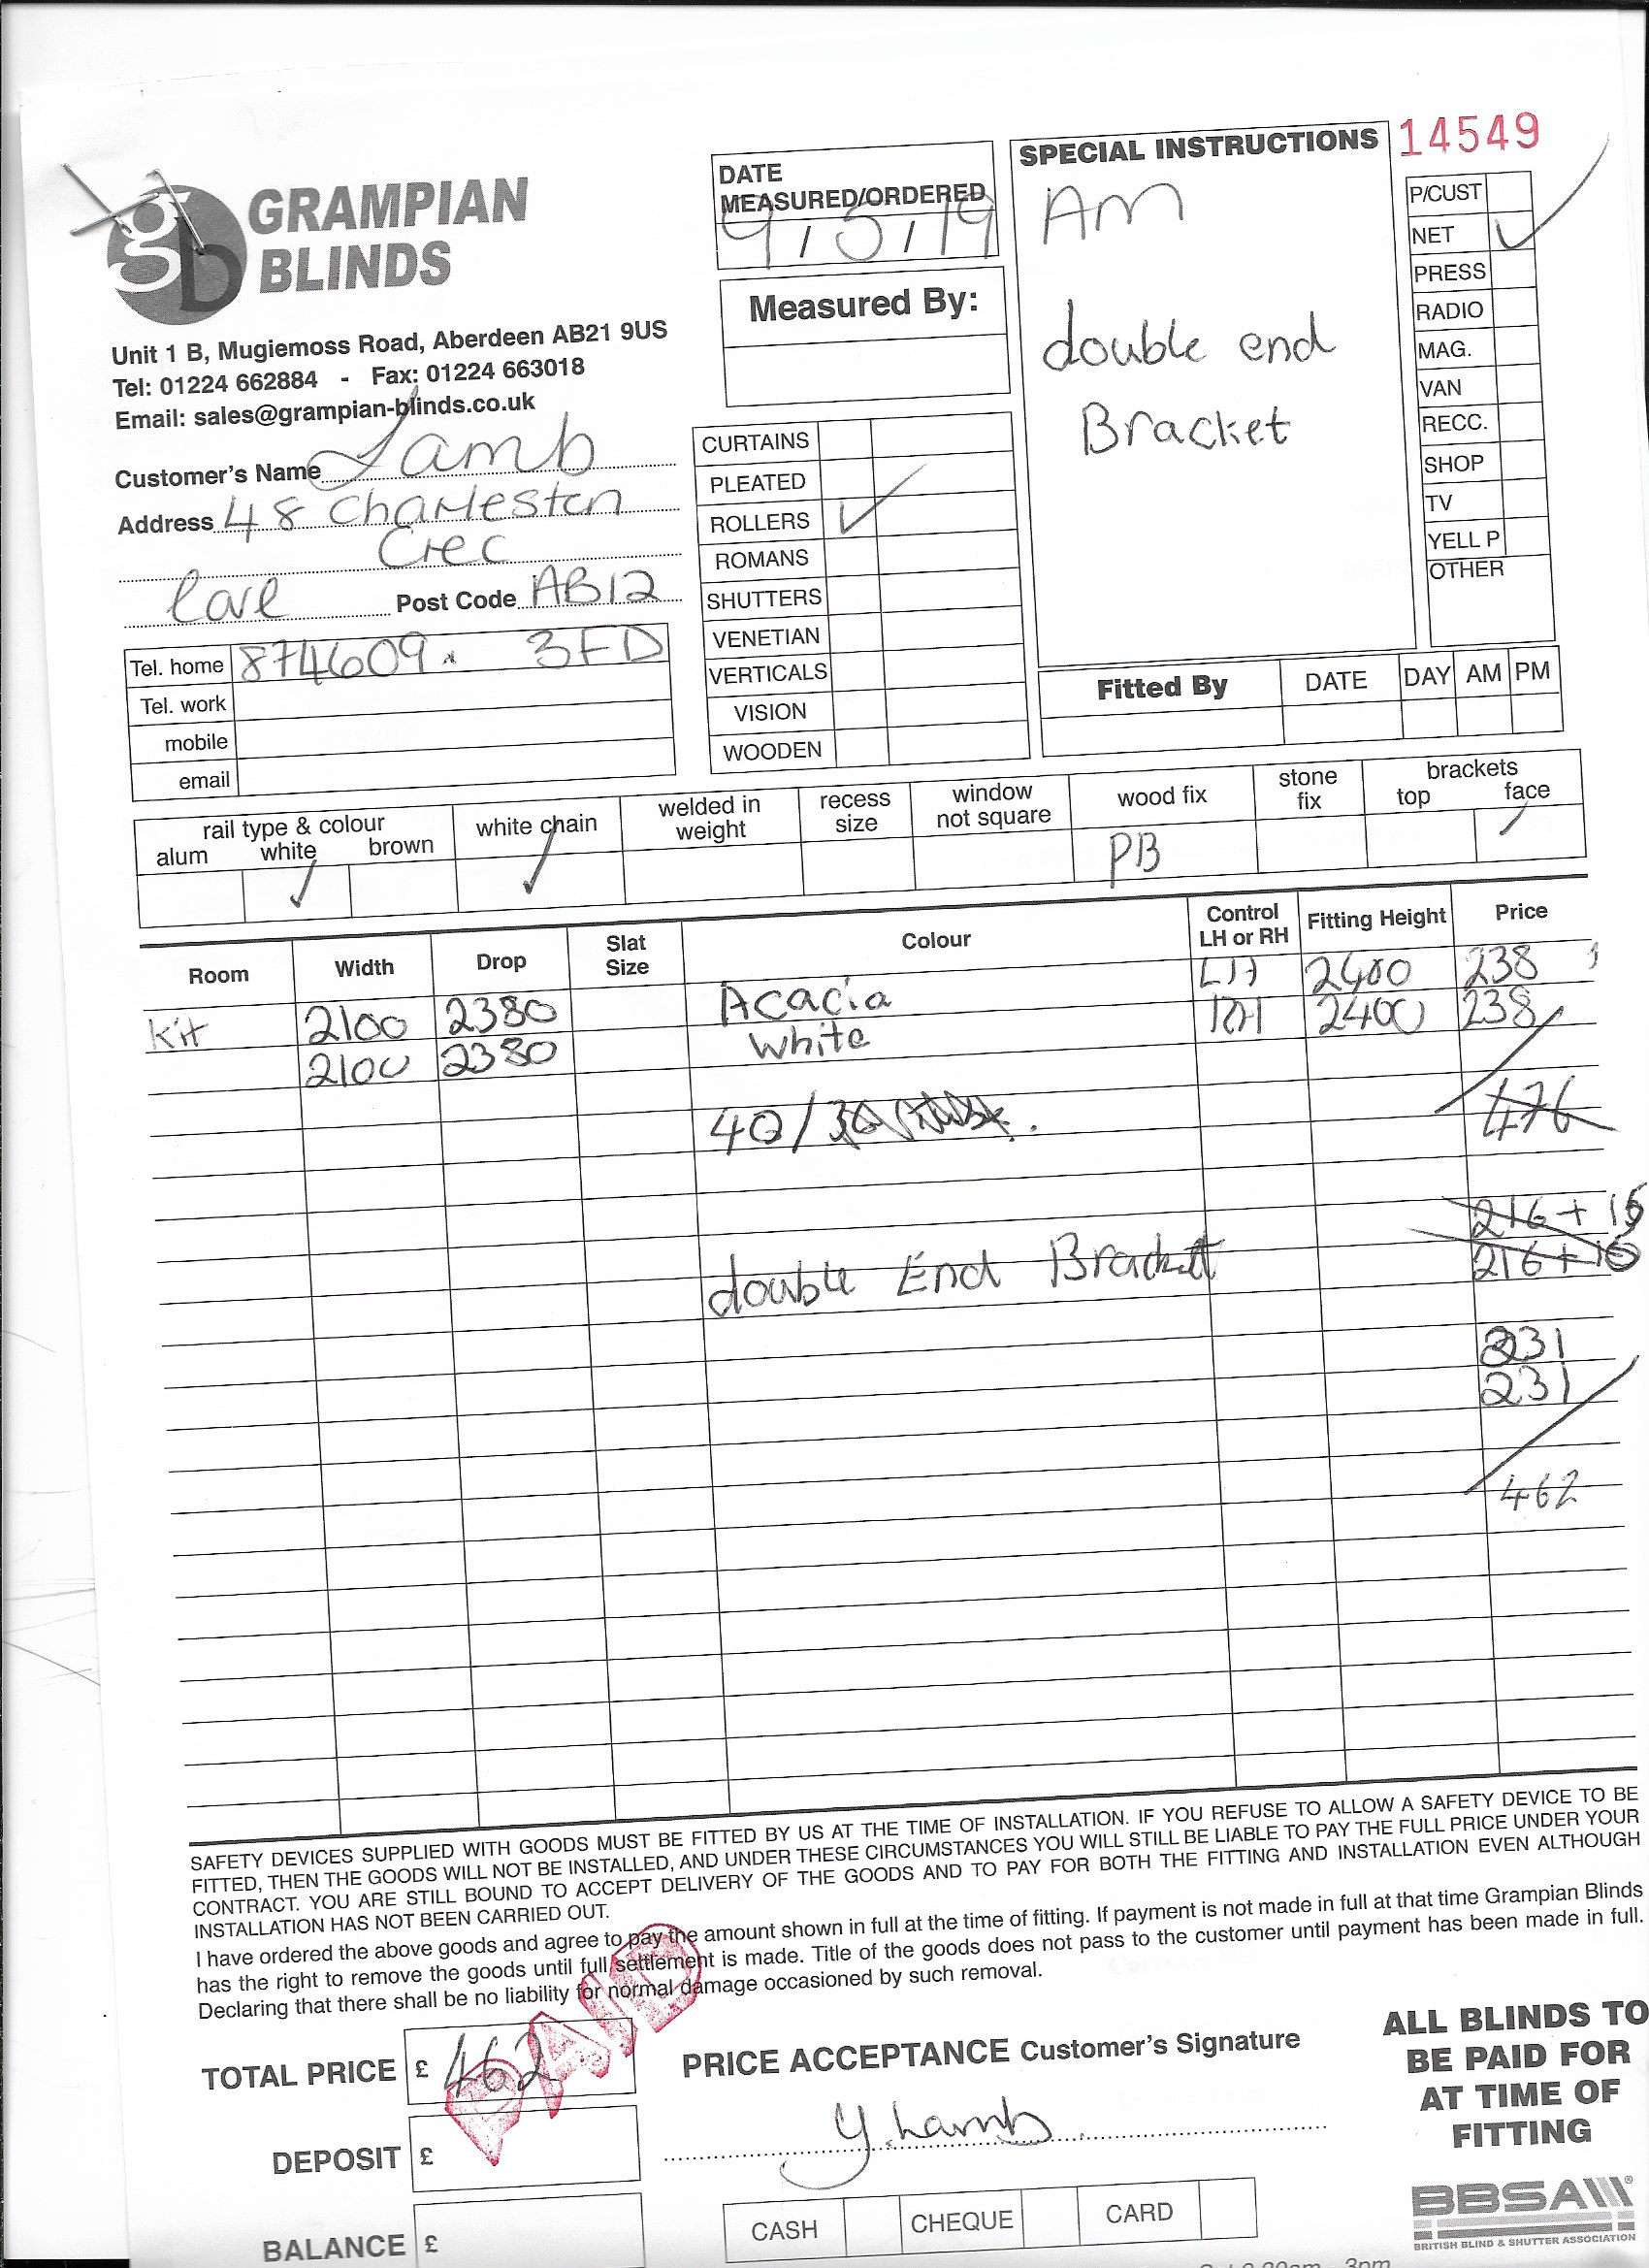 14549
gb GRAMPIAN
BLINDS
Unit 1 B, Mugiemoss Road, Aberdeen AB21 9US
Tel: 01224 662884 - Fax: 01224 663018
Email: sales@grampian-blinds.co.uk
Customer's Name Lamb
Address 48 Charleston
Crec
Cove Post Code AB12
Tel. home 874609. 3FD
Tel. work
mobile
email
DATE
MEASURED/ORDERED
9/5/19
Measured By:
CURTAINS
PLEATED
ROLLERS ✓
ROMANS
SHUTTERS
VENETIAN
VERTICALS
VISION
WOODEN
SPECIAL INSTRUCTIONS
AM
double end
Bracket
P/CUST
NET ✓
PRESS
RADIO
MAG.
VAN
RECC.
SHOP
TV
YELL P
OTHER
Fitted By DATE DAY AM PM
rail type & colour
alum white brown
✓
white chain
✓
welded in
weight
recess
size
window
not square
wood fix
PB
stone
fix
brackets
top face
Room Width Drop Slat Size Colour Control LH or RH Fitting Height Price
Kit 2100 2380 Acacia LH 2400 238
2100 2380 White RH 2400 238
40/
476
216 + 15
double End Bracket 216 + 15
231
231
462
SAFETY DEVICES SUPPLIED WITH GOODS MUST BE FITTED BY US AT THE TIME OF INSTALLATION. IF YOU REFUSE TO ALLOW A SAFETY DEVICE TO BE
FITTED, THEN THE GOODS WILL NOT BE INSTALLED, AND UNDER THESE CIRCUMSTANCES YOU WILL STILL BE LIABLE TO PAY THE FULL PRICE UNDER YOUR
CONTRACT. YOU ARE STILL BOUND TO ACCEPT DELIVERY OF THE GOODS AND TO PAY FOR BOTH THE FITTING AND INSTALLATION EVEN ALTHOUGH
INSTALLATION HAS NOT BEEN CARRIED OUT.
I have ordered the above goods and agree to pay the amount shown in full at the time of fitting. If payment is not made in full at that time Grampian Blinds
has the right to remove the goods until full settlement is made. Title of the goods does not pass to the customer until payment has been made in full.
Declaring that there shall be no liability for normal damage occasioned by such removal.
PAID
TOTAL PRICE £ 462
DEPOSIT £
BALANCE £
PRICE ACCEPTANCE Customer's Signature
Y Lamb
CASH CHEQUE CARD
ALL BLINDS TO
BE PAID FOR
AT TIME OF
FITTING
BBSA®
BRITISH BLIND & SHUTTER ASSOCIATION